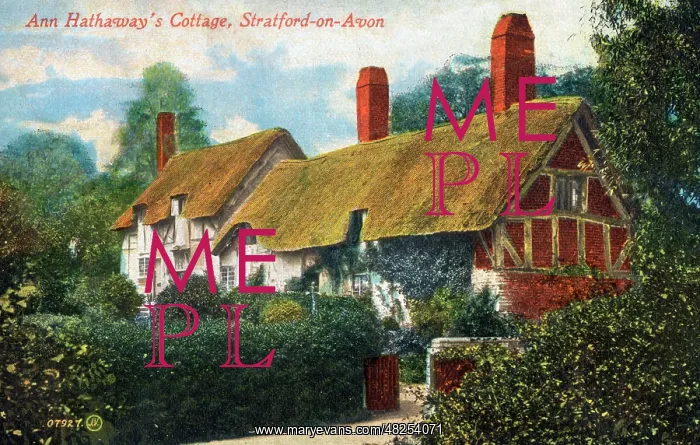 Ann Hathaway's Cottage, Stratford-on-Avon
ME
PL
ME
PL
07927. JV
www.maryevans.com/48254071